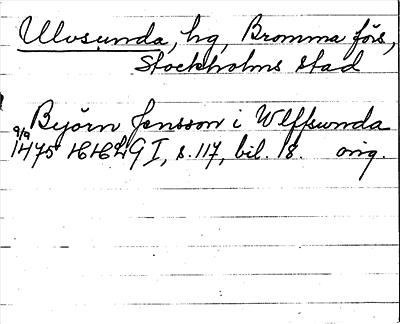 Ulvsunda, hg, Bromma förs,
Stockholms stad
Björn Jensson i Wlffsunda
9/9 1475 HHLG I, s. 117, bil. 18. orig.